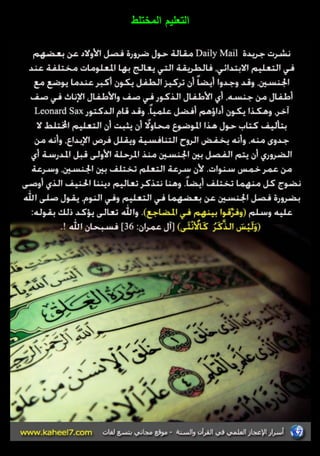 التعليم المختلط
نشرت جريدة Daily Mail مقالة حول ضرورة فصل الأولاد عن بعضهم
في التعليم الابتدائي، فالطريقة التي يعالج بها المعلومات مختلفة عند
الجنسين. وقد وجدوا أيضاً أن تركيز الطفل يكون أكبر عندما يوضع مع
أطفال من جنسه، أي الأطفال الذكور في صف والأطفال الإناث في صف
آخر. وهكذا يكون أداؤهم أفضل علمياً. وقد قام الدكتور Leonard Sax
بتأليف كتاب حول هذا الموضوع محاولاً أن يثبت أن التعليم المختلط لا
جدوى منه، وأنه يخفض الروح التنافسية ويقلل فرص الإبداع. وأنه من
الضروري أن يتم الفصل بين الجنسين منذ المرحلة الأولى قبل المدرسة أي
من عمر خمس سنوات. لأن سرعة التعلم تختلف بين الجنسين، وسرعة
نضوج كل منهما تختلف أيضاً. وهنا نتذكر تعاليم ديننا الحنيف الذي أوصى
بضرورة فصل الجنسين عن بعضهما في التعليم وفي النوم. يقول صلى الله
عليه وسلم (وفرِّقوا بينهم في المضاجع). والله تعالى يؤكد ذلك بقوله:
(وَلَيْسَ الذَّكَرُ كَالْأُنْثَى) [آل عمران: 36] فسبحان الله !.
سورة العلق
بسم الله الرحمن الرحيم
خلق الإنسان من علق
الإنسان
www.kaheel7.com أسرار الإعجاز العلمي في القرآن والسنة - موقع مجاني بتسع لغات